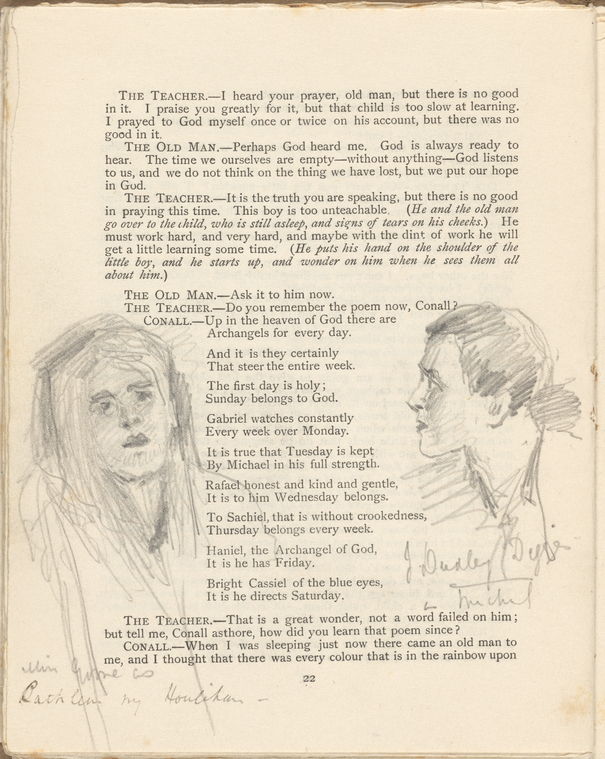 THE TEACHER.—I heard your prayer, old man, but there is no good
in it. I praise you greatly for it, but that child is too slow at learning.
I prayed to God myself once or twice on his account, but there was no
good in it.
THE OLD MAN.—Perhaps God heard me. God is always ready to
hear. The time we ourselves are empty—without anything—God listens
to us, and we do not think on the thing we have lost, but we put our hope
in God.
THE TEACHER.—It is the truth you are speaking, but there is no good
in praying this time. This boy is too unteachable. (He and the old man
go over to the child, who is still asleep, and signs of tears on his cheeks.) He
must work hard, and very hard, and maybe with the dint of work he will
get a little learning some time. (He puts his hand on the shoulder of the
little boy, and he starts up, and wonder on him when he sees them all
about him.)
THE OLD MAN.—Ask it to him now.
THE TEACHER.—Do you remember the poem now, Conall?
CONALL.—Up in the heaven of God there are
Archangels for every day.
And it is they certainly
That steer the entire week.
The first day is holy;
Sunday belongs to God.
Gabriel watches constantly
Every week over Monday.
It is true that Tuesday is kept
By Michael in his full strength.
Rafael honest and kind and gentle,
It is to him Wednesday belongs.
To Sachiel, that is without crookedness,
Thursday belongs every week.
Haniel, the Archangel of God,
It is he has Friday.
Bright Cassiel of the blue eyes,
It is he directs Saturday.
J Dudley Digges
Michel
THE TEACHER.—That is a great wonder, not a word failed on him;
but tell me, Conall asthore, how did you learn that poem since?
CONALL.—When I was sleeping just now there came an old man to
me, and I thought that there was every colour that is in the rainbow upon
Miss Gonne as
Cathleen ny Houlihan –
22